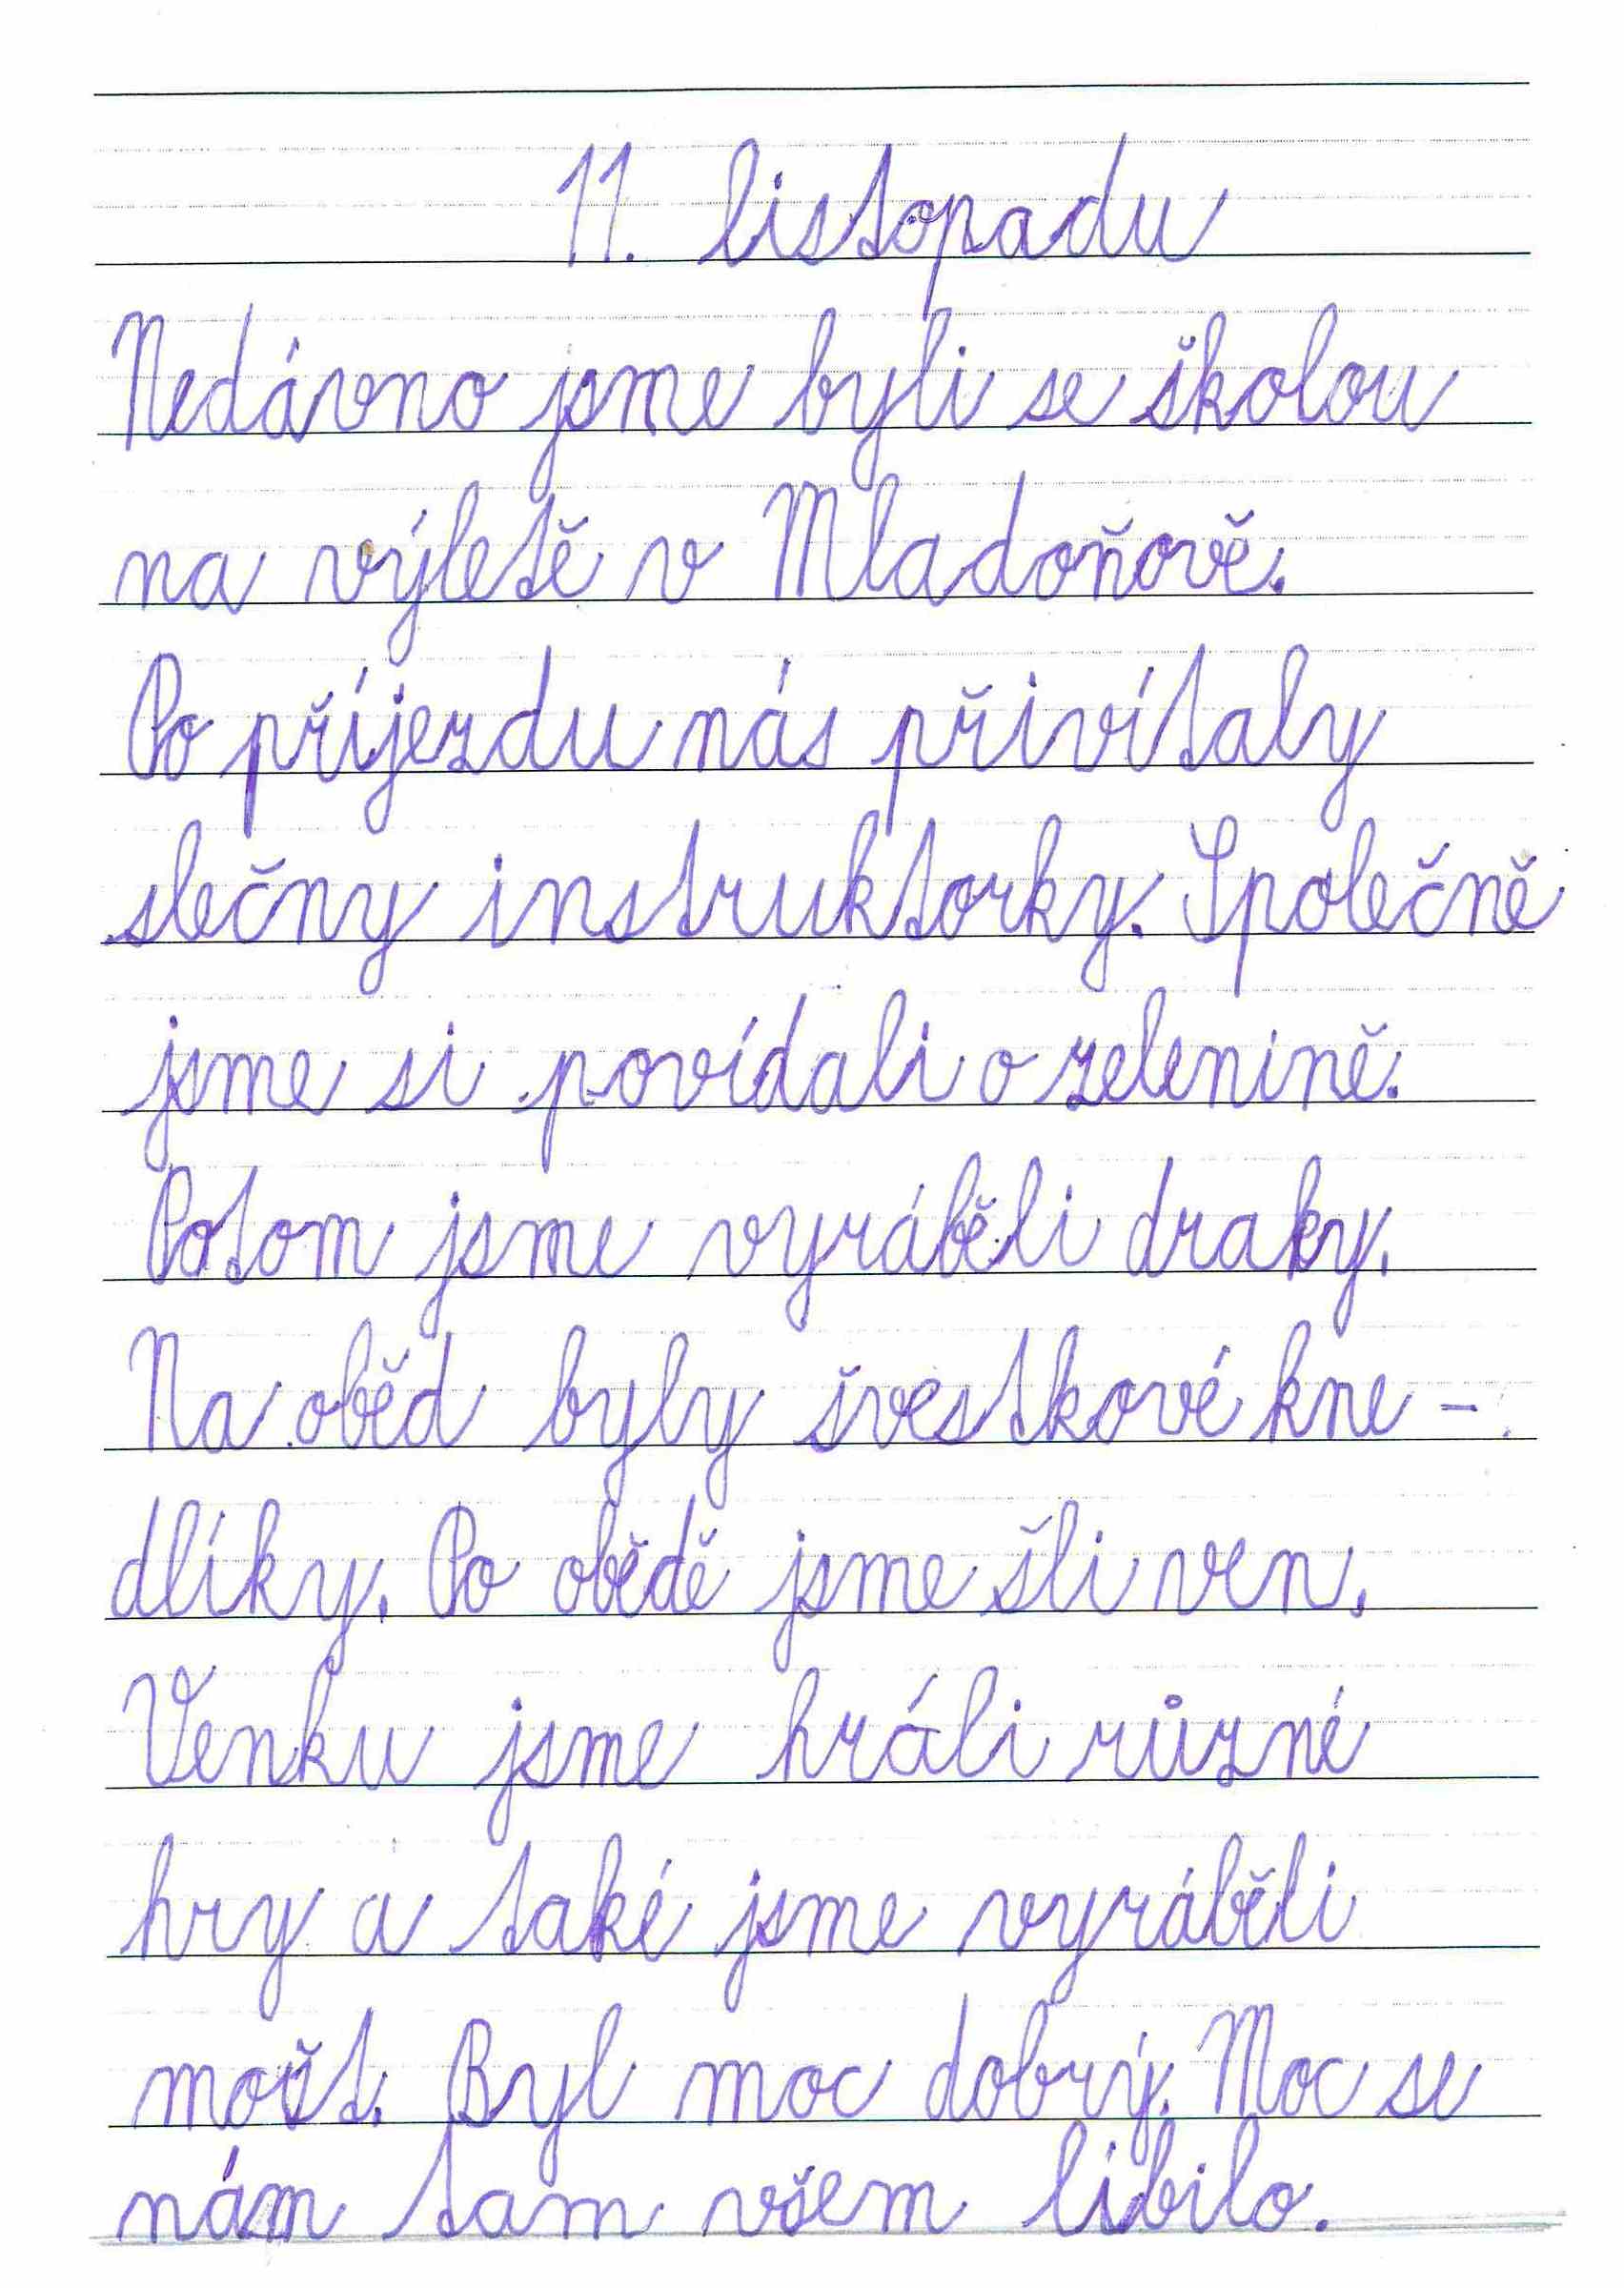 11. listopadu
Nedávno jsme byli se školou
na výletě v Mladoňově.
Po příjezdu nás přivítaly
slečny instruktorky. Společně
jsme si povídali o zelenině.
Potom jsme vyráběli draky.
Na oběd byly švestkové kne-
dlíky. Po obědě jsme šli ven.
Venku jsme hráli různé
hry a také jsme vyráběli
mošt. Byl moc dobrý. Moc se
nám tam všem líbilo.